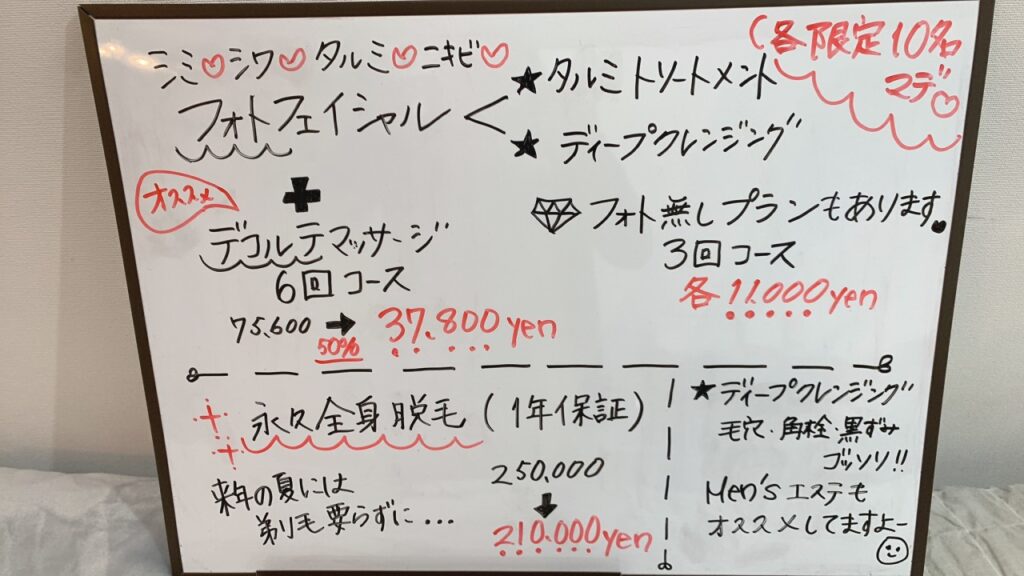 シミ♡シワ♡タルミ♡ニキビ♡
(各限定10名
マデ♡
フォトフェイシャル <
★タルミトリートメント
★ディープクレンジング
オススメ
+
デコルテマッサージ
6回コース
75,600 → 37,800yen
50%
フォト無しプランもあります。
3回コース
各11,000yen
永久全身脱毛(1年保証)
来年の夏には
剃毛要らずに...
250,000
↓
210,000yen
★ディープクレンジング
毛穴・角栓・黒ずみ
ゴッソリ!!
Men'sエステも
オススメしてますよー